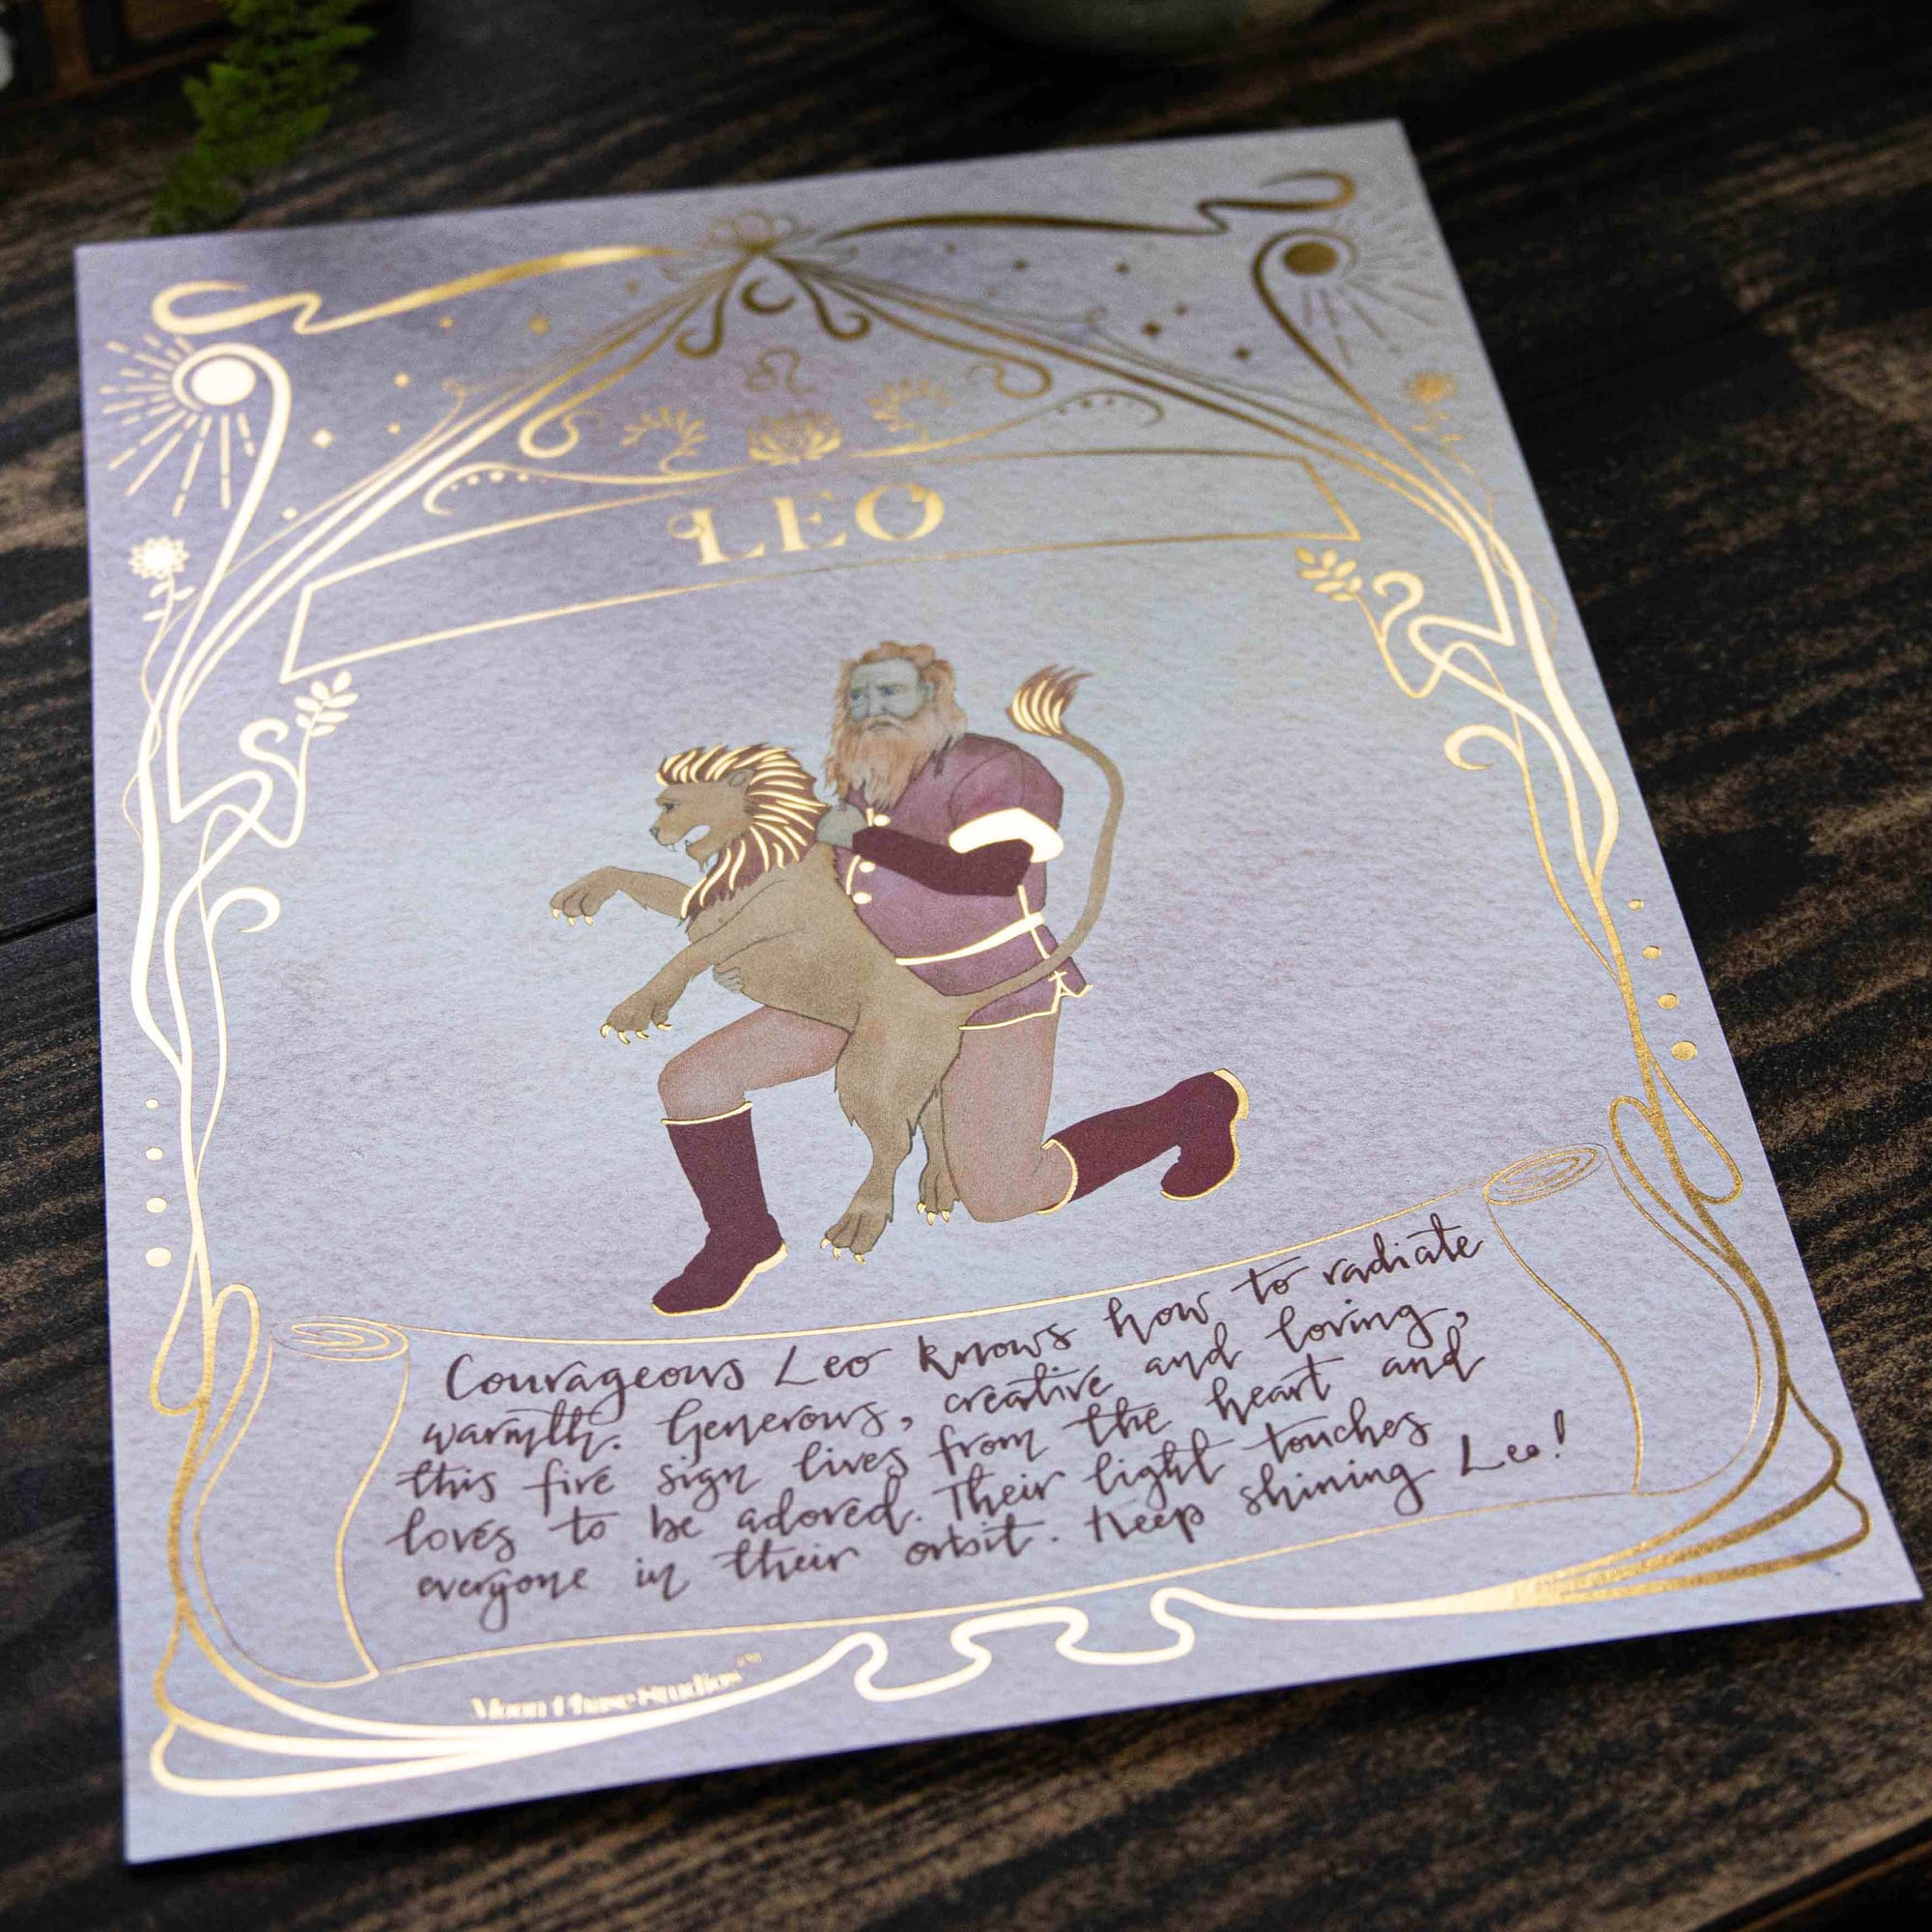 LEO
Courageous Leo knows how to radiate
warmth. Generous, creative and loving,
this fire sign lives from the heart and
loves to be adored. Their light touches
everyone in their orbit. Keep shining Leo!
Moon Phase Studios™